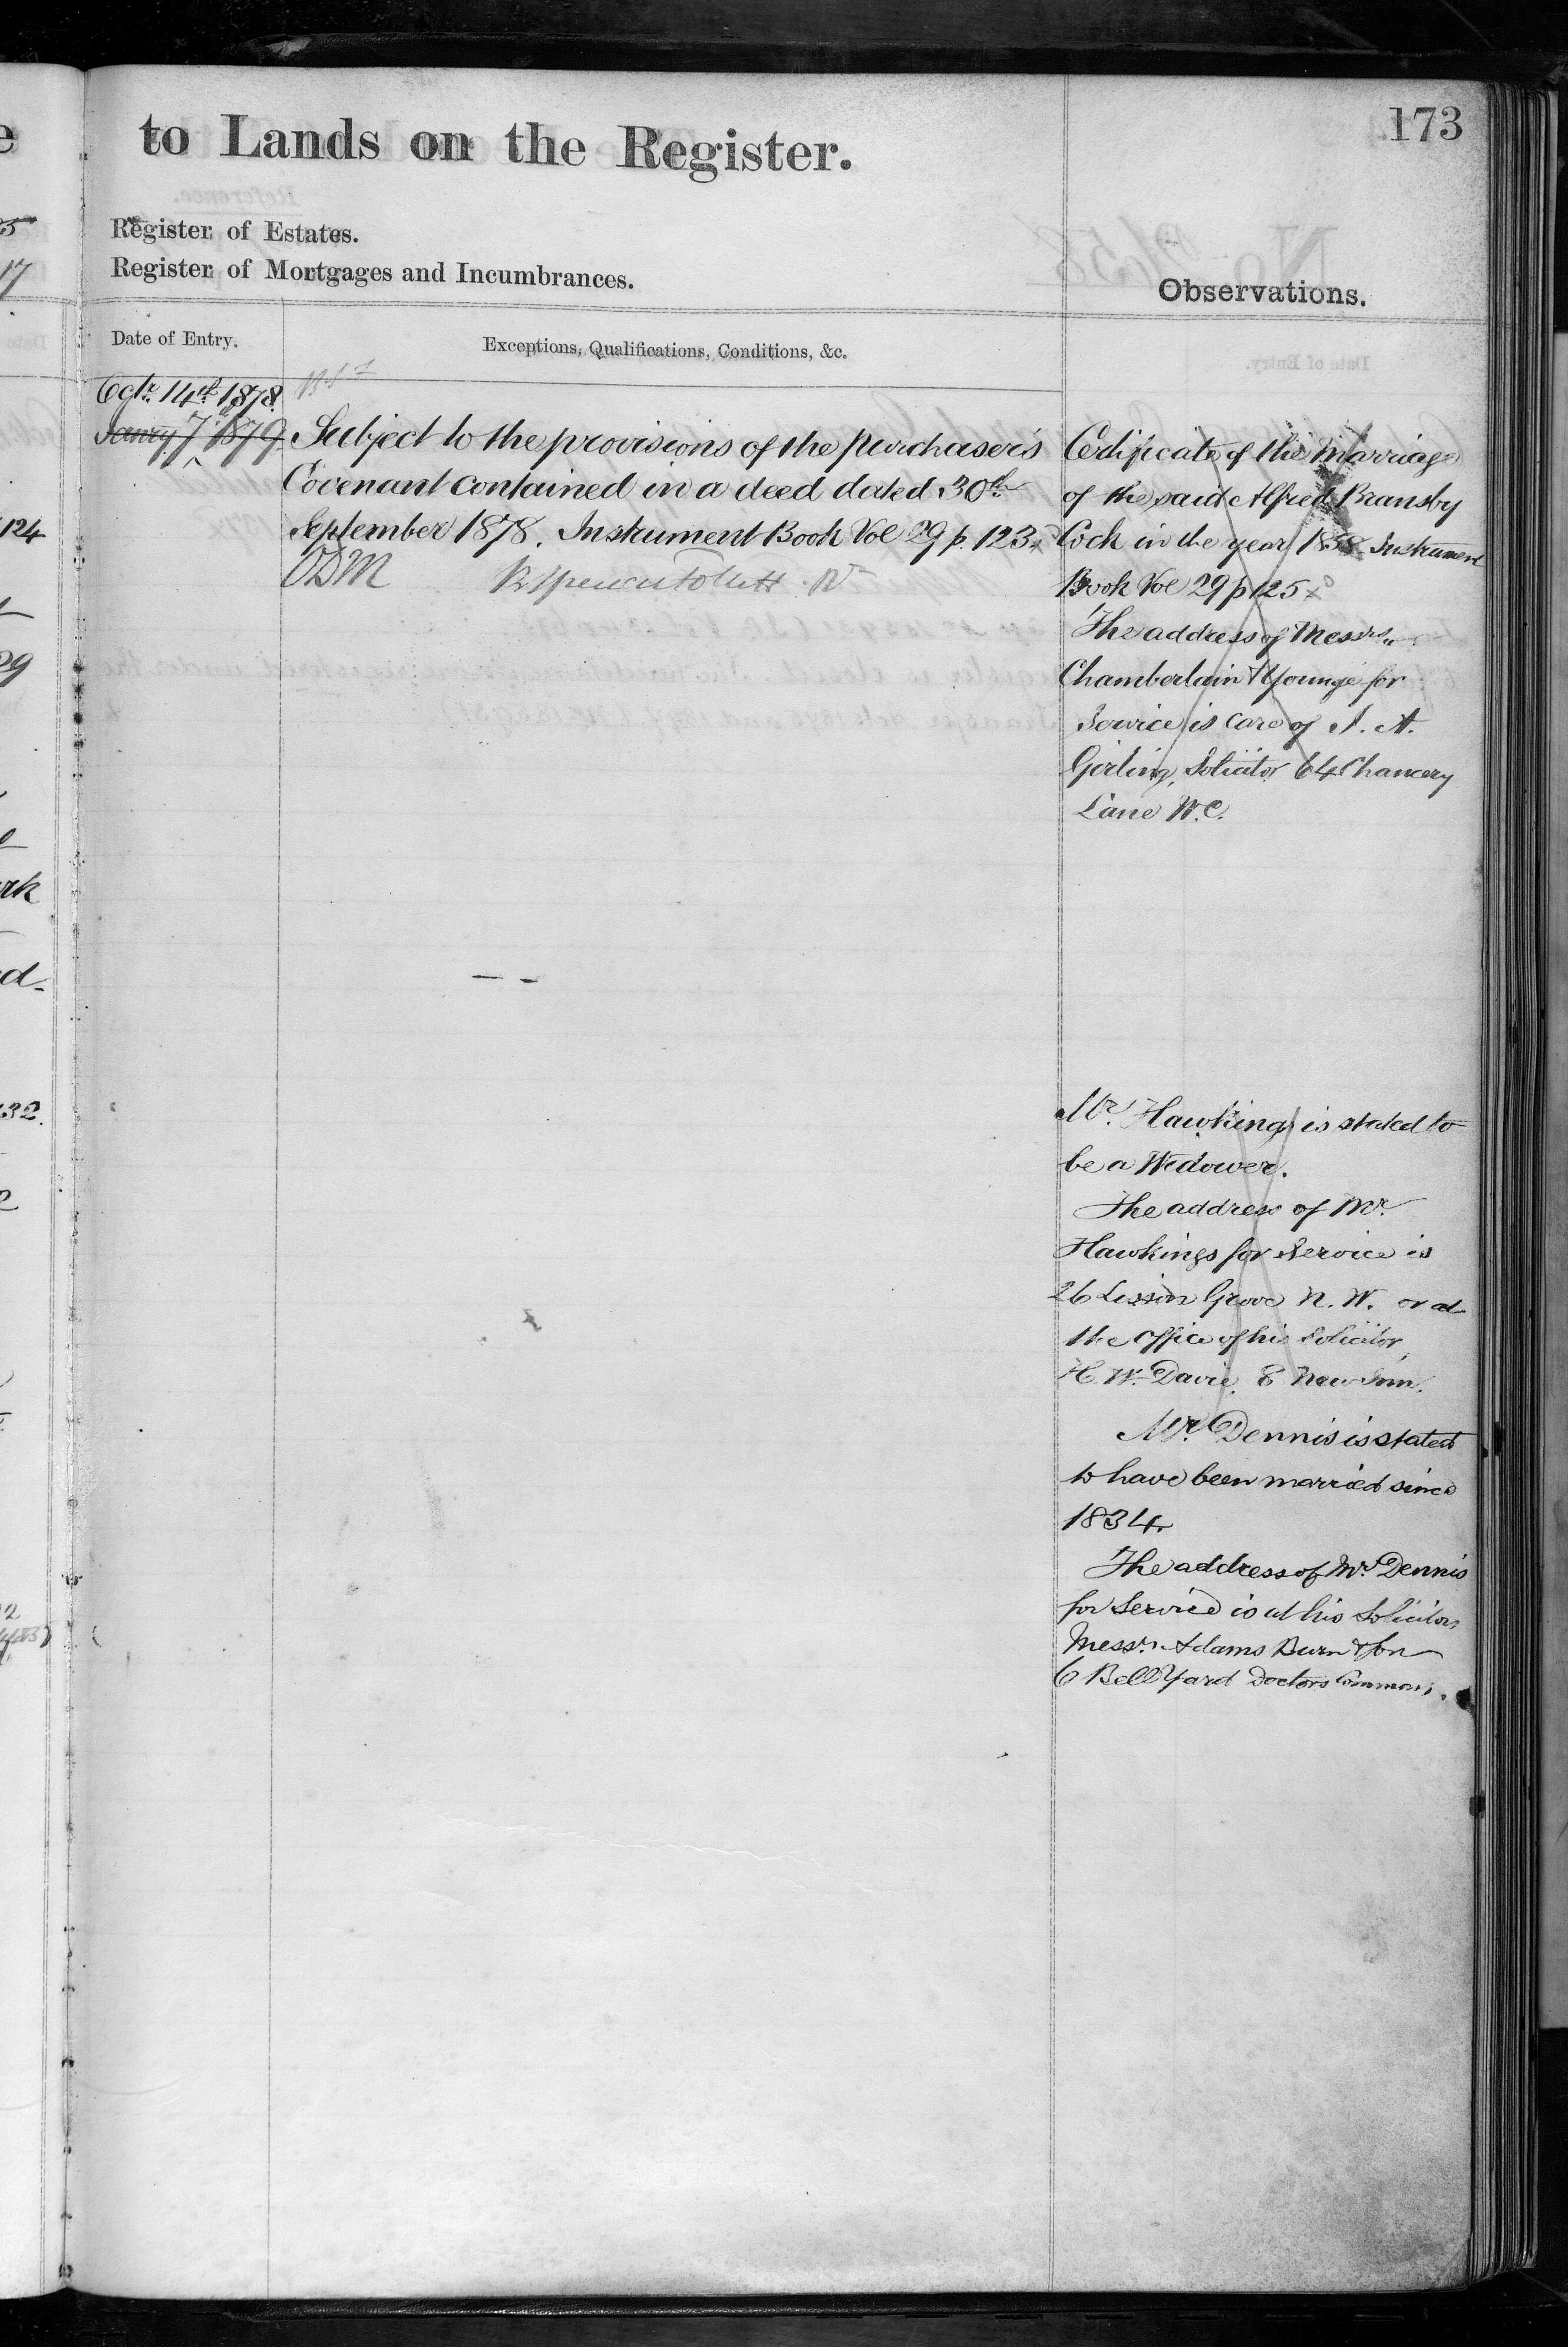 173
to Lands on the Register.
Register of Estates.
Register of Mortgages and Incumbrances.
Observations.
Date of Entry.
Exceptions, Qualifications, Conditions, &c.
Octr. 14th 1878.
Janry 7th 1879
Subject to the provisions of the purchaser's
Covenant contained in a deed dated 30th
September 1878. Instrument Book Vol 29 p. 123.
ODM
Certificate of the Marriage
of the said Alfred Bransby
Cock in the year 1858 Instrument
Book Vol 29 p 125
The address of Messrs.
Chamberlain & Younge for
Service is care of A.
Girling, Solicitor 64 Chancery
Lane W.C.
Mr. Hawkings is stated to
be a Widower.
The address of Mr.
Hawkings for Service is
26 Lisson Grove N. W. or at
the Office of his Solicitor,
H. W. Davie, 8 New Inn.
Mr. Dennis is stated
to have been married since
1834.
The address of Mr. Dennis
for Service is at his Solicitors
Messrs. Adams Burn & Son
6 Bell Yard Doctors Commons.
e
17
124
29
rk
d-
32.
2